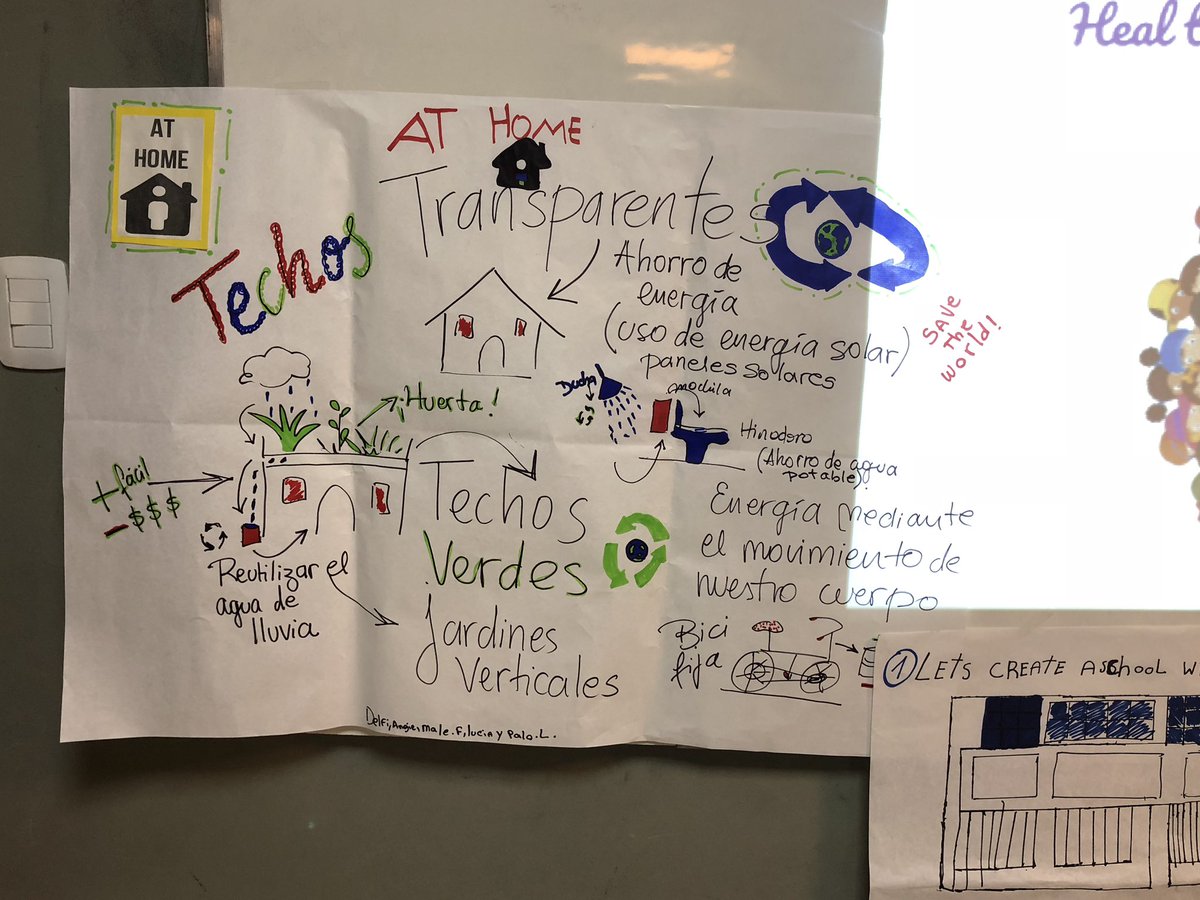 Heal t
AT
HOME
AT HOME
Techos
Transparentes
Ahorro de
energía
(uso de energía solar)
paneles solares
SAVE
THE
WORLD!
Ducha
mochila
Hinodoro
(Ahorro de agua
potable)
¡Huerta!
+fácil
-$$$
Reutilizar el
agua de
lluvia
Techos
Verdes
Jardines
Verticales
Energía mediante
el movimiento de
nuestro cuerpo
Bici
fija
Delfi, male.F, lucia y Palo.L.
1 LETS CREATE A SCHOOL W